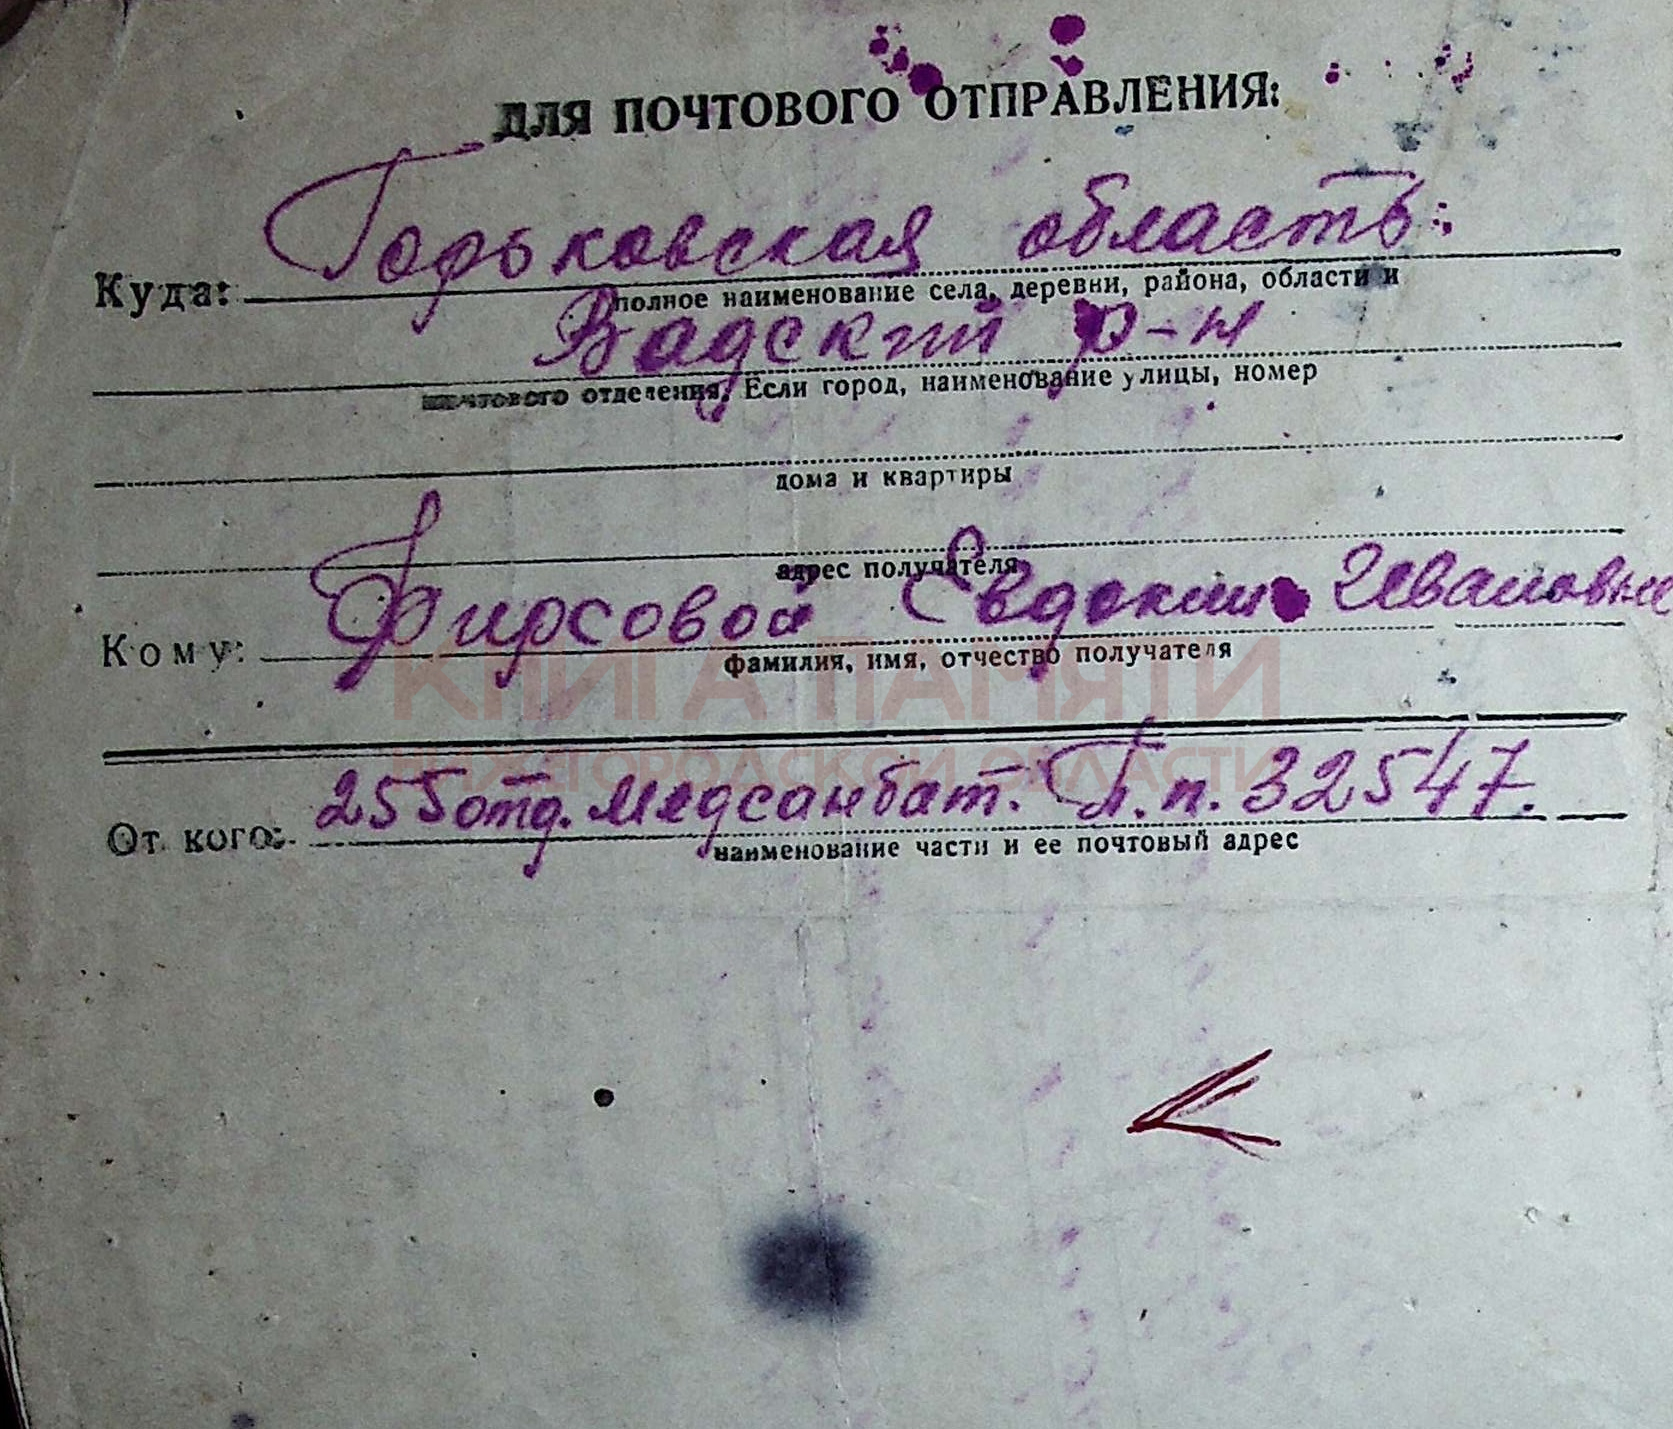 ДЛЯ ПОЧТОВОГО ОТПРАВЛЕНИЯ:
Куда: Горьковская область
полное наименование села, деревни, района, области и
Вадский р-н
почтового отделения. Если город, наименование улицы, номер
дома и квартиры
адрес получателя
Кому: Фирсовой Евдокии Ивановне
фамилия, имя, отчество получателя
КНИГА ПАМЯТИ
НИЖЕГОРОДСКОЙ ОБЛАСТИ
От кого: 255 отд. Медсанбат. П.п. 32547.
наименование части и ее почтовый адрес